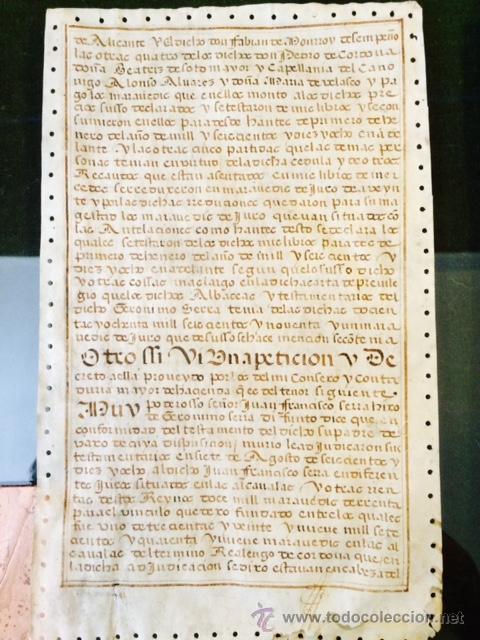 de Alicante y El dicho don Fabian de Monrroy desempeño
las otras quatro de los dichos don Pedro de Cordova
doña Beatris de soto mayor y Capellania del Cano
nigo Alonso Alvares y doña Maria de Velasco y pa
go los maravedis que en ellos monto a los dichos pre
cios susso declarados y se testaron de mis libros y se con
sumieron en ellos para desde hantes de primero de he
nero del año de mill y seicientos y diez y ocho en a de
lante y las otras cinco partidas que las demas per
sonas tenian en virtud de la dicha cedula y de otros
Recaudos que estan asentados en mis libros de mer
cedes se rreduxeron a maravedis de Juro de a veyn
te y por las dichas rreduciones quedaron para su ma
gestad los maravedis de Juro que van situados con
las Antelaciones como hantes desto se declara los
quales se testaron de los dichos mis libros para desde
primero de henero del año de mill y seiscientos y
diez y ocho en adelante segun que lo susso dicho
y otras cossas mas largo en la dicha carta de previle
gio que los dichos Albaceas y testamentarios del
dicho Geronimo Serra tenia de las dichas docien
tas y ochenta mill seiscientos y noventa y un mara
vedis de Juro que de susso se hace mencion se conte nia
Otro ssi Vi Una peticion y De
creto a ella proveydo por los del mi Consexo y Conta
duria mayor de hacienda que es del tenor siguiente
Muy poderosso señor Juan Francisco serra hixo
de Geronimo serra difunto dice que en
conformidad del testamento del dicho su padre de
vaxo de cuya dispusicion murio le adjudicaron sus
testamentarios en siete de Agosto de seiscientos y
diez y ocho al dicho Juan Francisco serra en diferen
tes Juros situados en las alcavalas y otras rren
tas destos Reynos doce mill maravedis de rrenta
para el vinculo que dexo fundado entre los quales
fue uno de trecientas y veinte y nueve mill sete
cientos y quarenta y nueve maravedis en las al
cavalas del termino Realengo de cordova que en
la dicha adjudicacion se dixo estavan en cabeza del
© www.todocoleccion.net